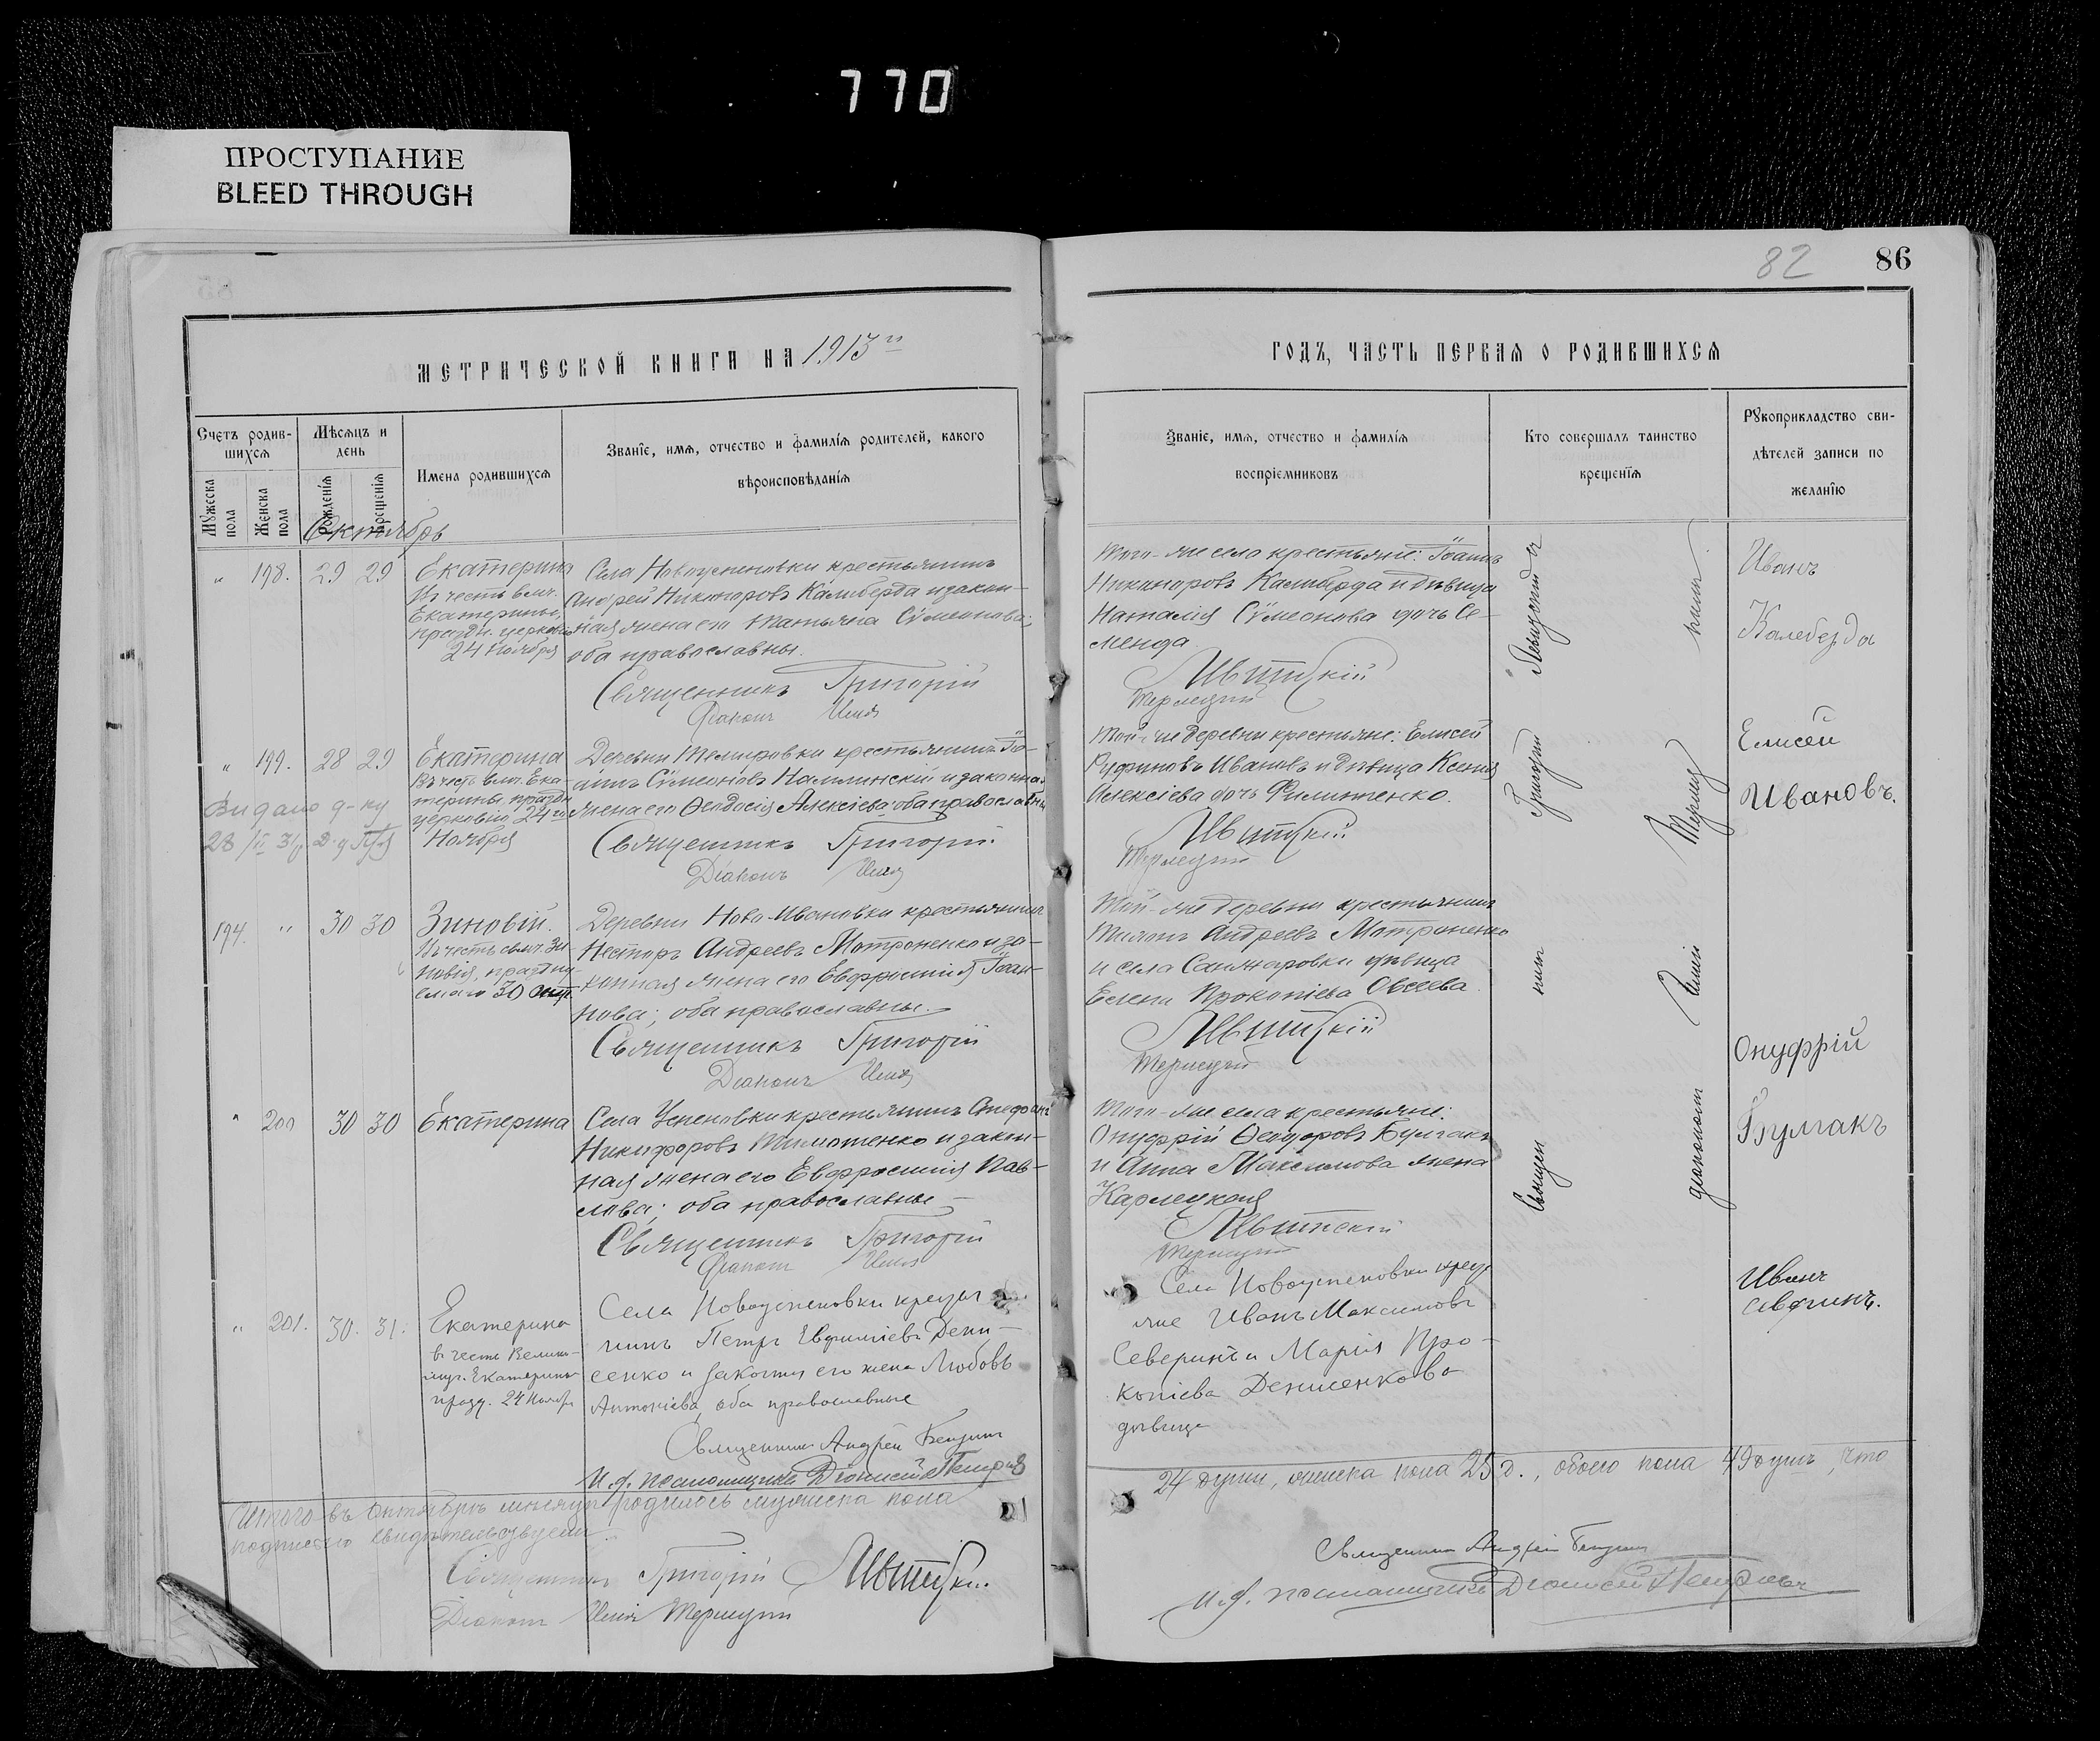 770
ПРОСТУПАНИЕ
BLEED THROUGH
82
86
МЕТРИЧЕСКОЙ КНИГИ НА 1913 г
ГОДЪ, ЧАСТЬ ПЕРВАЯ О РОДИВШИХСЯ
Счетъ родив-
шихся
Мѣсяцъ и
день
Имена родившихся
Званіе, имя, отчество и фамилія родителей, какого
вѣроисповѣданія
Мужеска
пола
Женска
пола
Рожденія
Крещенія
Званіе, имя, отчество и фамилія
воспріемниковъ
Кто совершалъ таинство
крещенія
Рукоприкладство сви-
дѣтелей записи по
желанію
Октябрь
„ 198. 29 29
Екатерина
Въ честь влмч.
Екатерины,
праздн. церковію
24 Ноября
Села Новоуспеновки крестьянинъ
Андрей Никаноровъ Калиберда и закон-
ная жена его Татьяна Сѵмеонова;
оба православны.
Священникъ Григорій
Діаконъ Илія
Того-же села крестьяне: Іоаннъ
Никаноровъ Калиберда и дѣвица
Наталія Сѵмеонова дочь Се-
менда
Иванъ
Калеберда
„ 199. 28 29
Екатерина
Въ честь влмч. Ека-
терины, праздн.
церковію 24 го
Ноября
Видано д-ку
Деревни крестьянинъ Іо-
аннъ Сѵмеоновъ и законная
жена его Ѳеодосія Алексіева; оба православны
Священникъ Григорій
Діаконъ Илія
Той-же деревни крестьяне: Елисей
Руфиновъ Ивановъ и дѣвица Ксенія
Алексіева дочь Филипенко.
Елисей
Ивановъ.
194. „ 30 30
Зиновій.
Въ честь свмч. Зи-
новія, праздну-
емаго 30 окт.
Деревни Ново-Ивановки крестьянинъ
Несторъ Андреевъ Матроненко и за-
конная жена его Евфросинія Іоан-
нова; оба православны.
Священникъ Григорій
Діаконъ Илія
Той-же деревни крестьянинъ
Андреевъ Матроненко
и села Санжаровки дѣвица
Елена Прокопіева Овсеева.
„ 200 30 30
Екатерина
Села Успеновки крестьянинъ Стефанъ
Никифоровъ Тимотенко и закон-
ная жена его Евфросинія Пав-
лова; оба православные
Священникъ Григорій
Діаконъ Илія
Того-же села крестьяне:
Онуфрій Ѳеодоровъ Булгакъ
и Анна Максимова жена
Карлецкая
Онуфрій
Булгакъ
„ 201. 30. 31.
Екатерина
в честь Велико-
муч. Екатерины
празд. 24 Ноябр.
Села Новоуспеновки
Петръ Евфиміевъ Дени-
сенко и законная его жена Любовь
Антоніева, оба православные
Священникъ Андрей
И. д. псаломщика Діонисій
Села Новоуспеновки крест
яне Иванъ Максимовъ
Северинъ и Марія Про-
копіева Денисенкова
дѣвица
Иванъ
Севринъ.
Итого въ Октябрѣ мѣсяцѣ родилось мужеска пола
24 души, женска пола 25 д., обоего пола 49 душъ, что
подписью свидѣтельствуемъ.
Священникъ Григорій
Діаконъ Илія
Священникъ Андрей
И. д. псаломщика Діонисій